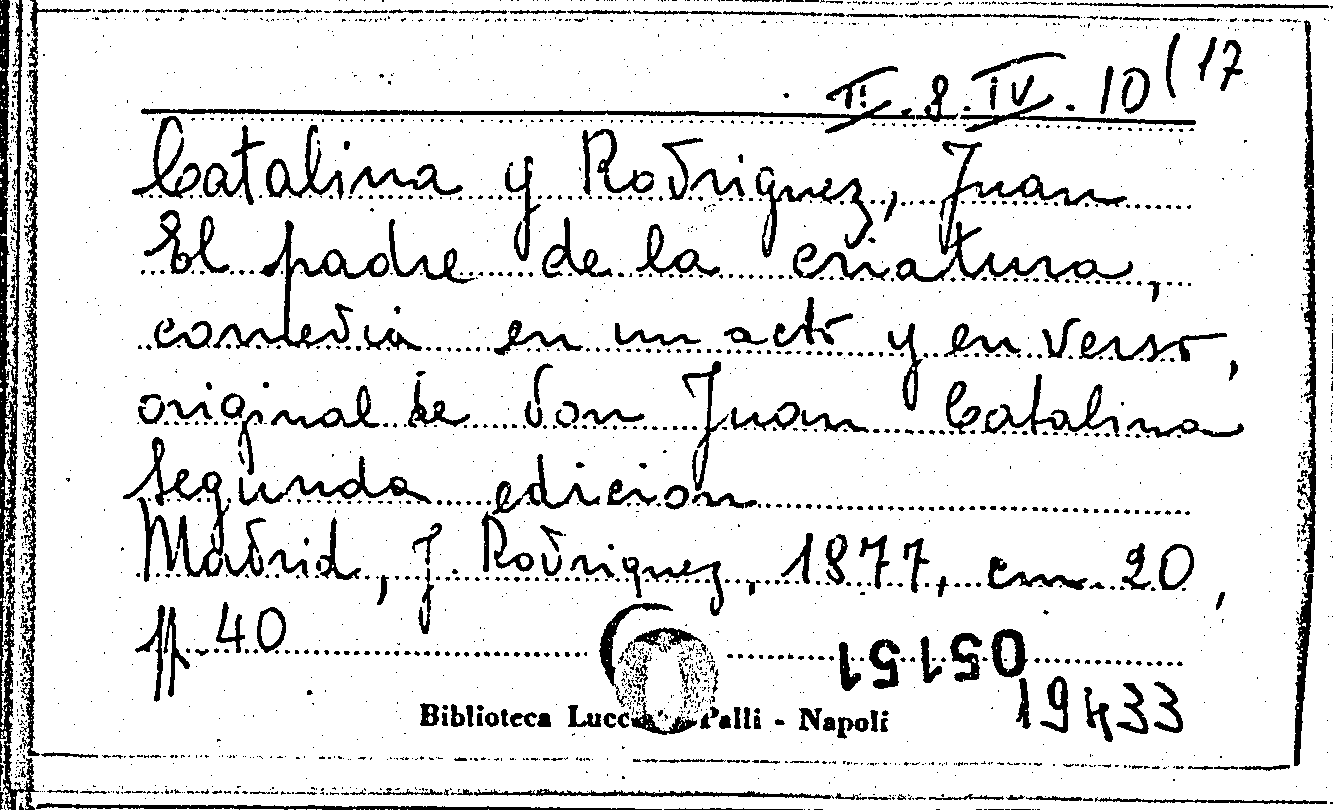 II. 8. IV. 10(17
Catalina y Rodriguez, Juan
El padre de la criatura,
comedia en un acto y en verso,
original de don Juan Catalina
Segunda edicion
Madrid, J. Rodriguez, 1877, cm. 20,
pp. 40
05151
19433
Biblioteca Lucc Palli - Napoli